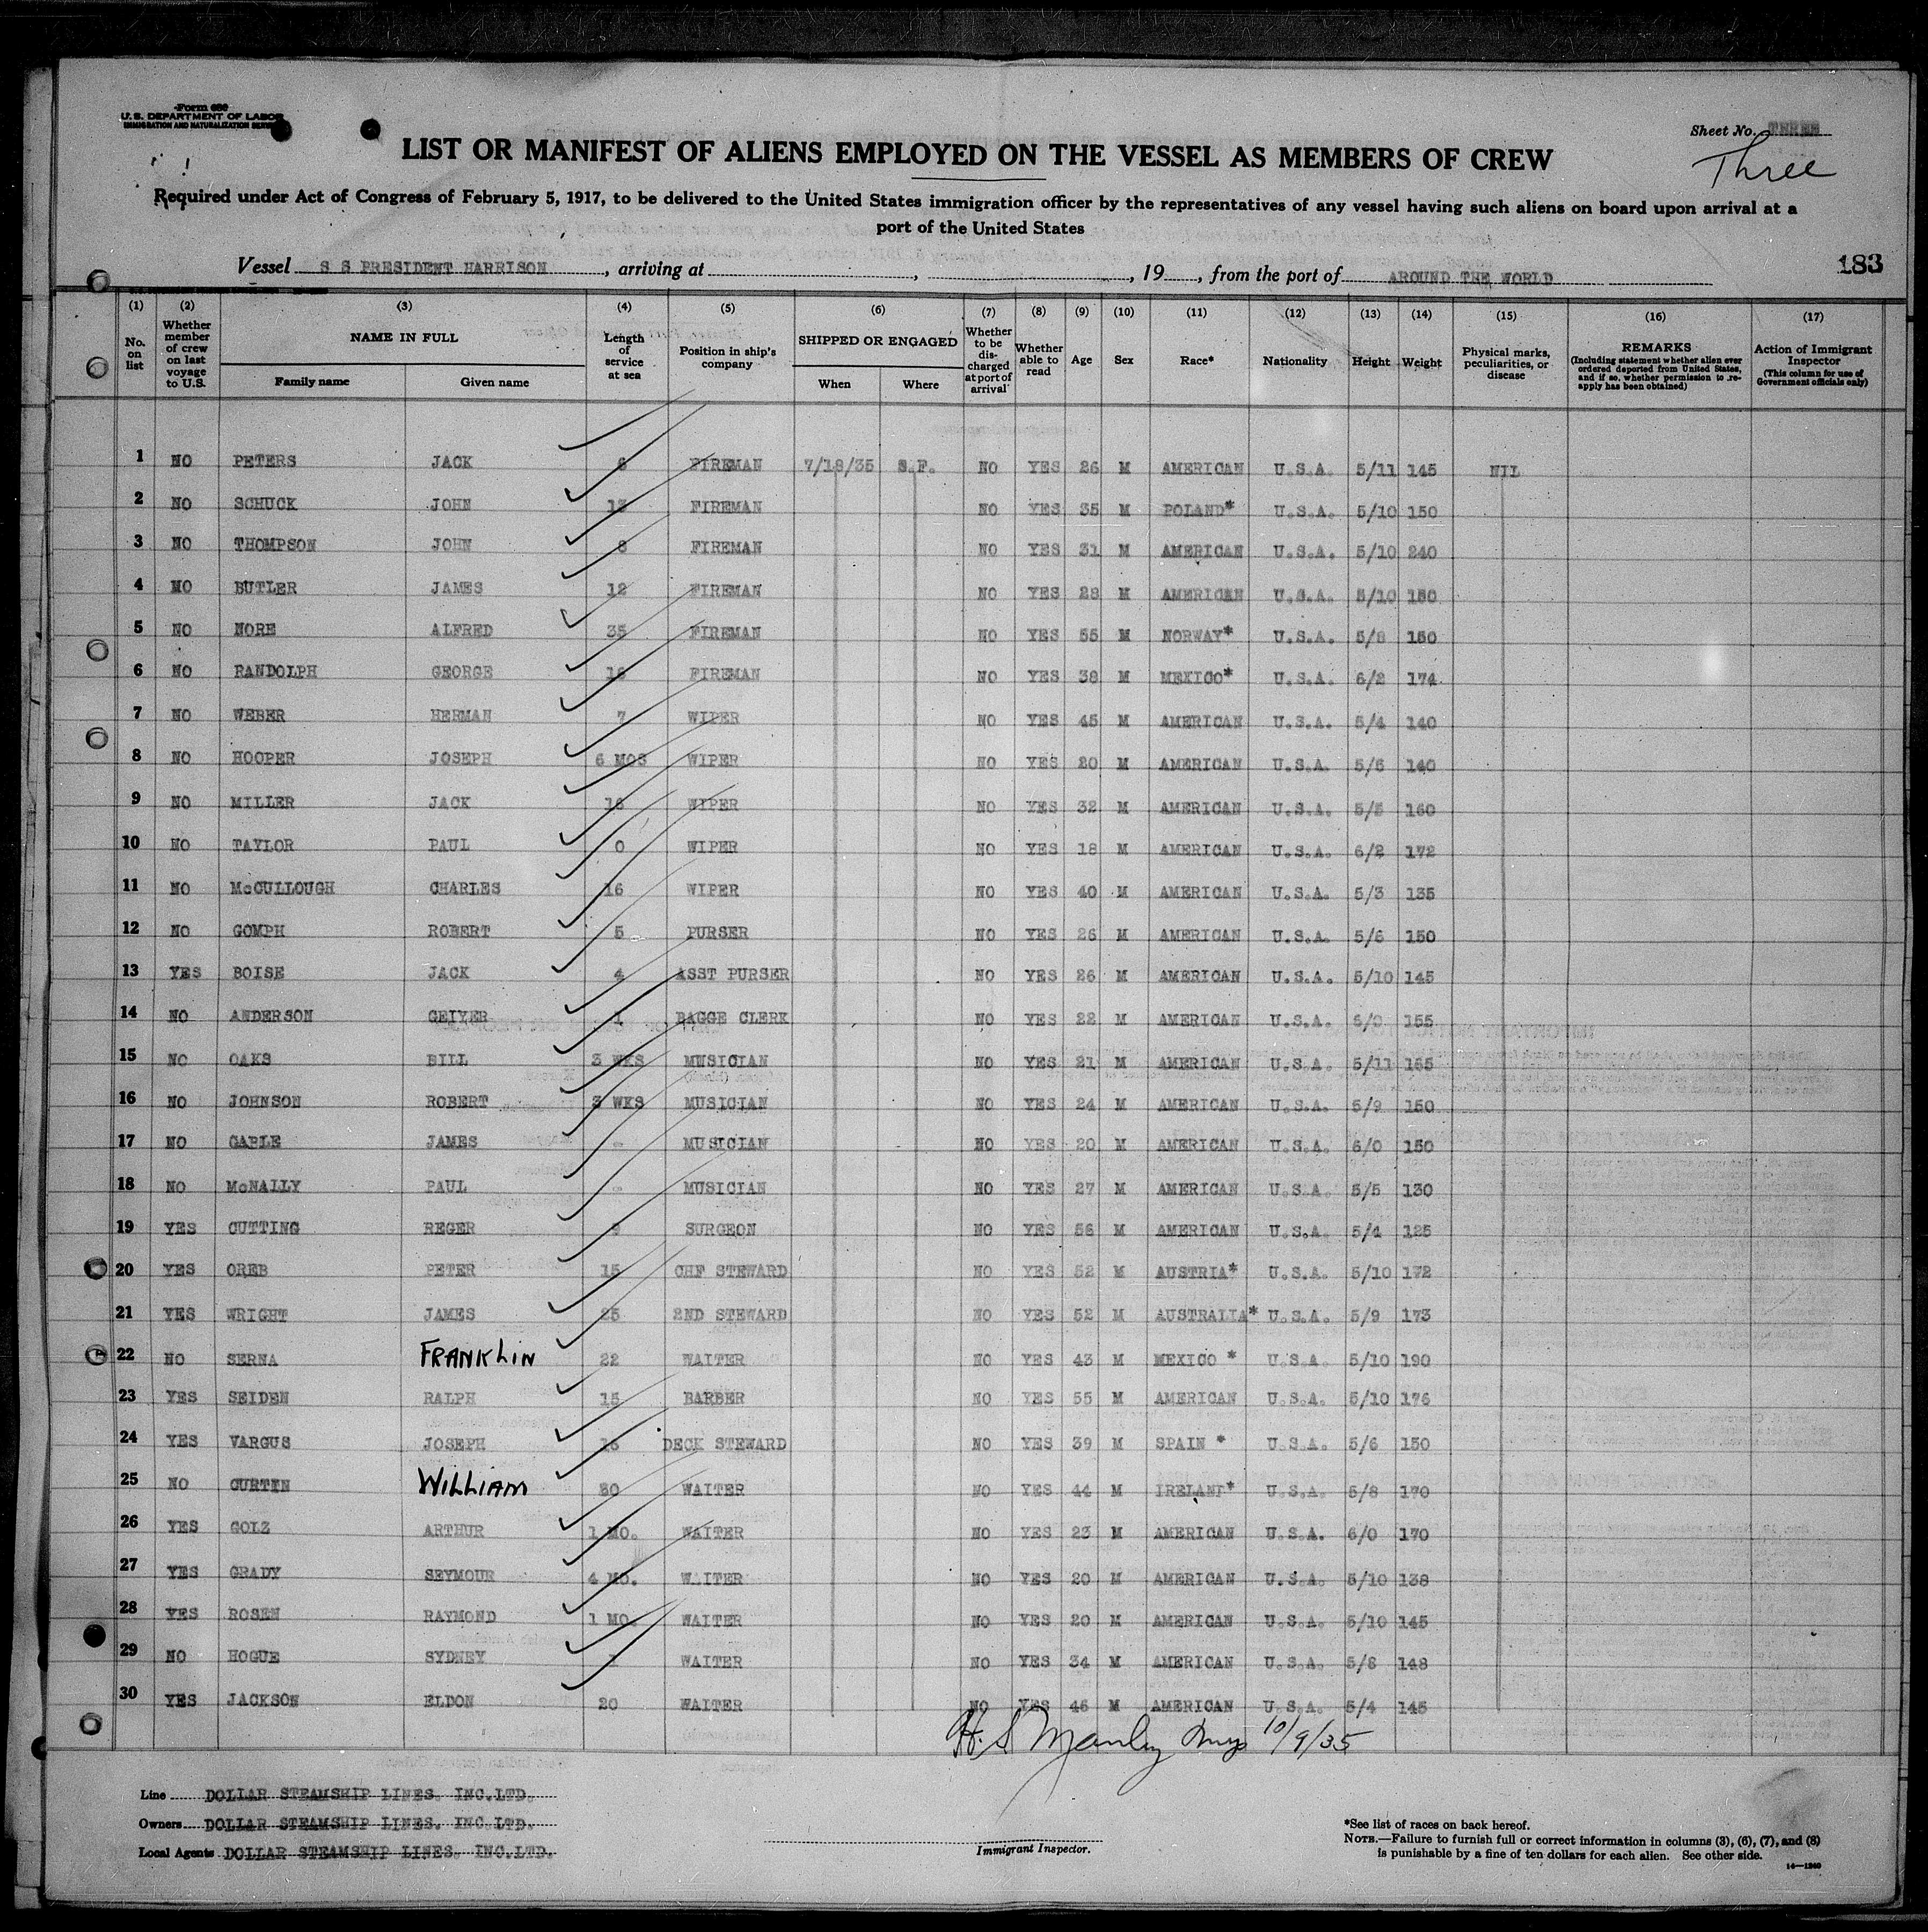 Form 680
U. S. DEPARTMENT OF LABOR
IMMIGRATION AND NATURALIZATION SERVICE
Sheet No. THREE
Three
LIST OR MANIFEST OF ALIENS EMPLOYED ON THE VESSEL AS MEMBERS OF CREW
Required under Act of Congress of February 5, 1917, to be delivered to the United States immigration officer by the representatives of any vessel having such aliens on board upon arrival at a
port of the United States
Vessel S S PRESIDENT HARRISON, arriving at , , 19 , from the port of AROUND THE WORLD
183
(1) (2) (3) (4) (5) (6) (7) (8) (9) (10) (11) (12) (13) (14) (15) (16) (17)
No. on list | Whether member of crew on last voyage to U.S. | NAME IN FULL | Length of service at sea | Position in ship's company | SHIPPED OR ENGAGED | Whether to be discharged at port of arrival | Whether able to read | Age | Sex | Race* | Nationality | Height | Weight | Physical marks, peculiarities, or disease | REMARKS (Including statement whether alien ever ordered deported from United States, and if so, whether permission to re-apply has been obtained) | Action of Immigrant Inspector (This column for use of Government officials only)
Family name | Given name | When | Where
1 NO PETERS JACK 6 FIREMAN 7/18/35 S.F. NO YES 26 M AMERICAN U.S.A. 5/11 145 NIL
2 NO SCHUCK JOHN 13 FIREMAN NO YES 35 M POLAND* U.S.A. 5/10 150
3 NO THOMPSON JOHN 8 FIREMAN NO YES 31 M AMERICAN U.S.A. 5/10 240
4 NO BUTLER JAMES 12 FIREMAN NO YES 28 M AMERICAN U.S.A. 5/10 150
5 NO NORE ALFRED 35 FIREMAN NO YES 55 M NORWAY* U.S.A. 5/8 150
6 NO RANDOLPH GEORGE 16 FIREMAN NO YES 38 M MEXICO* U.S.A. 6/2 174
7 NO WEBER HERMAN 7 WIPER NO YES 45 M AMERICAN U.S.A. 5/4 140
8 NO HOOPER JOSEPH 6 MOS WIPER NO YES 20 M AMERICAN U.S.A. 5/6 140
9 NO MILLER JACK 16 WIPER NO YES 32 M AMERICAN U.S.A. 5/5 160
10 NO TAYLOR PAUL 0 WIPER NO YES 18 M AMERICAN U.S.A. 6/2 172
11 NO McCULLOUGH CHARLES 16 WIPER NO YES 40 M AMERICAN U.S.A. 5/3 135
12 NO GOMPH ROBERT 5 PURSER NO YES 26 M AMERICAN U.S.A. 5/6 150
13 YES BOISE JACK 4 ASST PURSER NO YES 26 M AMERICAN U.S.A. 5/10 145
14 NO ANDERSON GEIYER 1 BAGGE CLERK NO YES 22 M AMERICAN U.S.A. 6/0 155
15 NO OAKS BILL 3 WKS MUSICIAN NO YES 21 M AMERICAN U.S.A 5/11 165
16 NO JOHNSON ROBERT 3 WKS MUSICIAN NO YES 24 M AMERICAN U.S.A. 5/9 150
17 NO GABLE JAMES - MUSICIAN NO YES 20 M AMERICAN U.S.A. 6/0 150
18 NO McNALLY PAUL - MUSICIAN NO YES 27 M AMERICAN U.S.A. 5/5 130
19 YES CUTTING REGER 9 SURGEON NO YES 56 M AMERICAN U.S.A. 5/4 125
20 YES OREB PETER 15 CHF STEWARD NO YES 52 M AUSTRIA* U.S.A. 5/10 172
21 YES WRIGHT JAMES 25 2ND STEWARD NO YES 52 M AUSTRALIA* U.S.A. 5/9 173
22 NO SERNA FRANKLIN 22 WAITER NO YES 43 M MEXICO * U.S.A. 5/10 190
23 YES SEIDEN RALPH 15 BARBER NO YES 55 M AMERICAN U.S.A. 5/10 176
24 YES VARGUS JOSEPH 16 DECK STEWARD NO YES 39 M SPAIN * U.S.A. 5/6 150
25 NO CURTIN WILLIAM 30 WAITER NO YES 44 M IRELAND* U.S.A. 5/8 170
26 YES GOLZ ARTHUR 1 MO. WAITER NO YES 23 M AMERICAN U.S.A. 6/0 170
27 YES GRADY SEYMOUR 4 MO. WAITER NO YES 20 M AMERICAN U.S.A. 5/10 138
28 YES ROSEN RAYMOND 1 MO. WAITER NO YES 20 M AMERICAN U.S.A. 5/10 145
29 NO HOGUE SYDNEY 1 WAITER NO YES 34 M AMERICAN U.S.A. 5/8 148
30 YES JACKSON ELDON 20 WAITER NO YES 46 M AMERICAN U.S.A. 5/4 145
H. S Manley Insp 10/9/35
Line DOLLAR STEAMSHIP LINES. INC.LTD.
Owners DOLLAR STEAMSHIP LINES. INC.LTD.
Local Agents DOLLAR STEAMSHIP LINES. INC.LTD.
Immigrant Inspector.
*See list of races on back hereof.
NOTE.—Failure to furnish full or correct information in columns (3), (6), (7), and (8)
is punishable by a fine of ten dollars for each alien. See other side.
14—1240